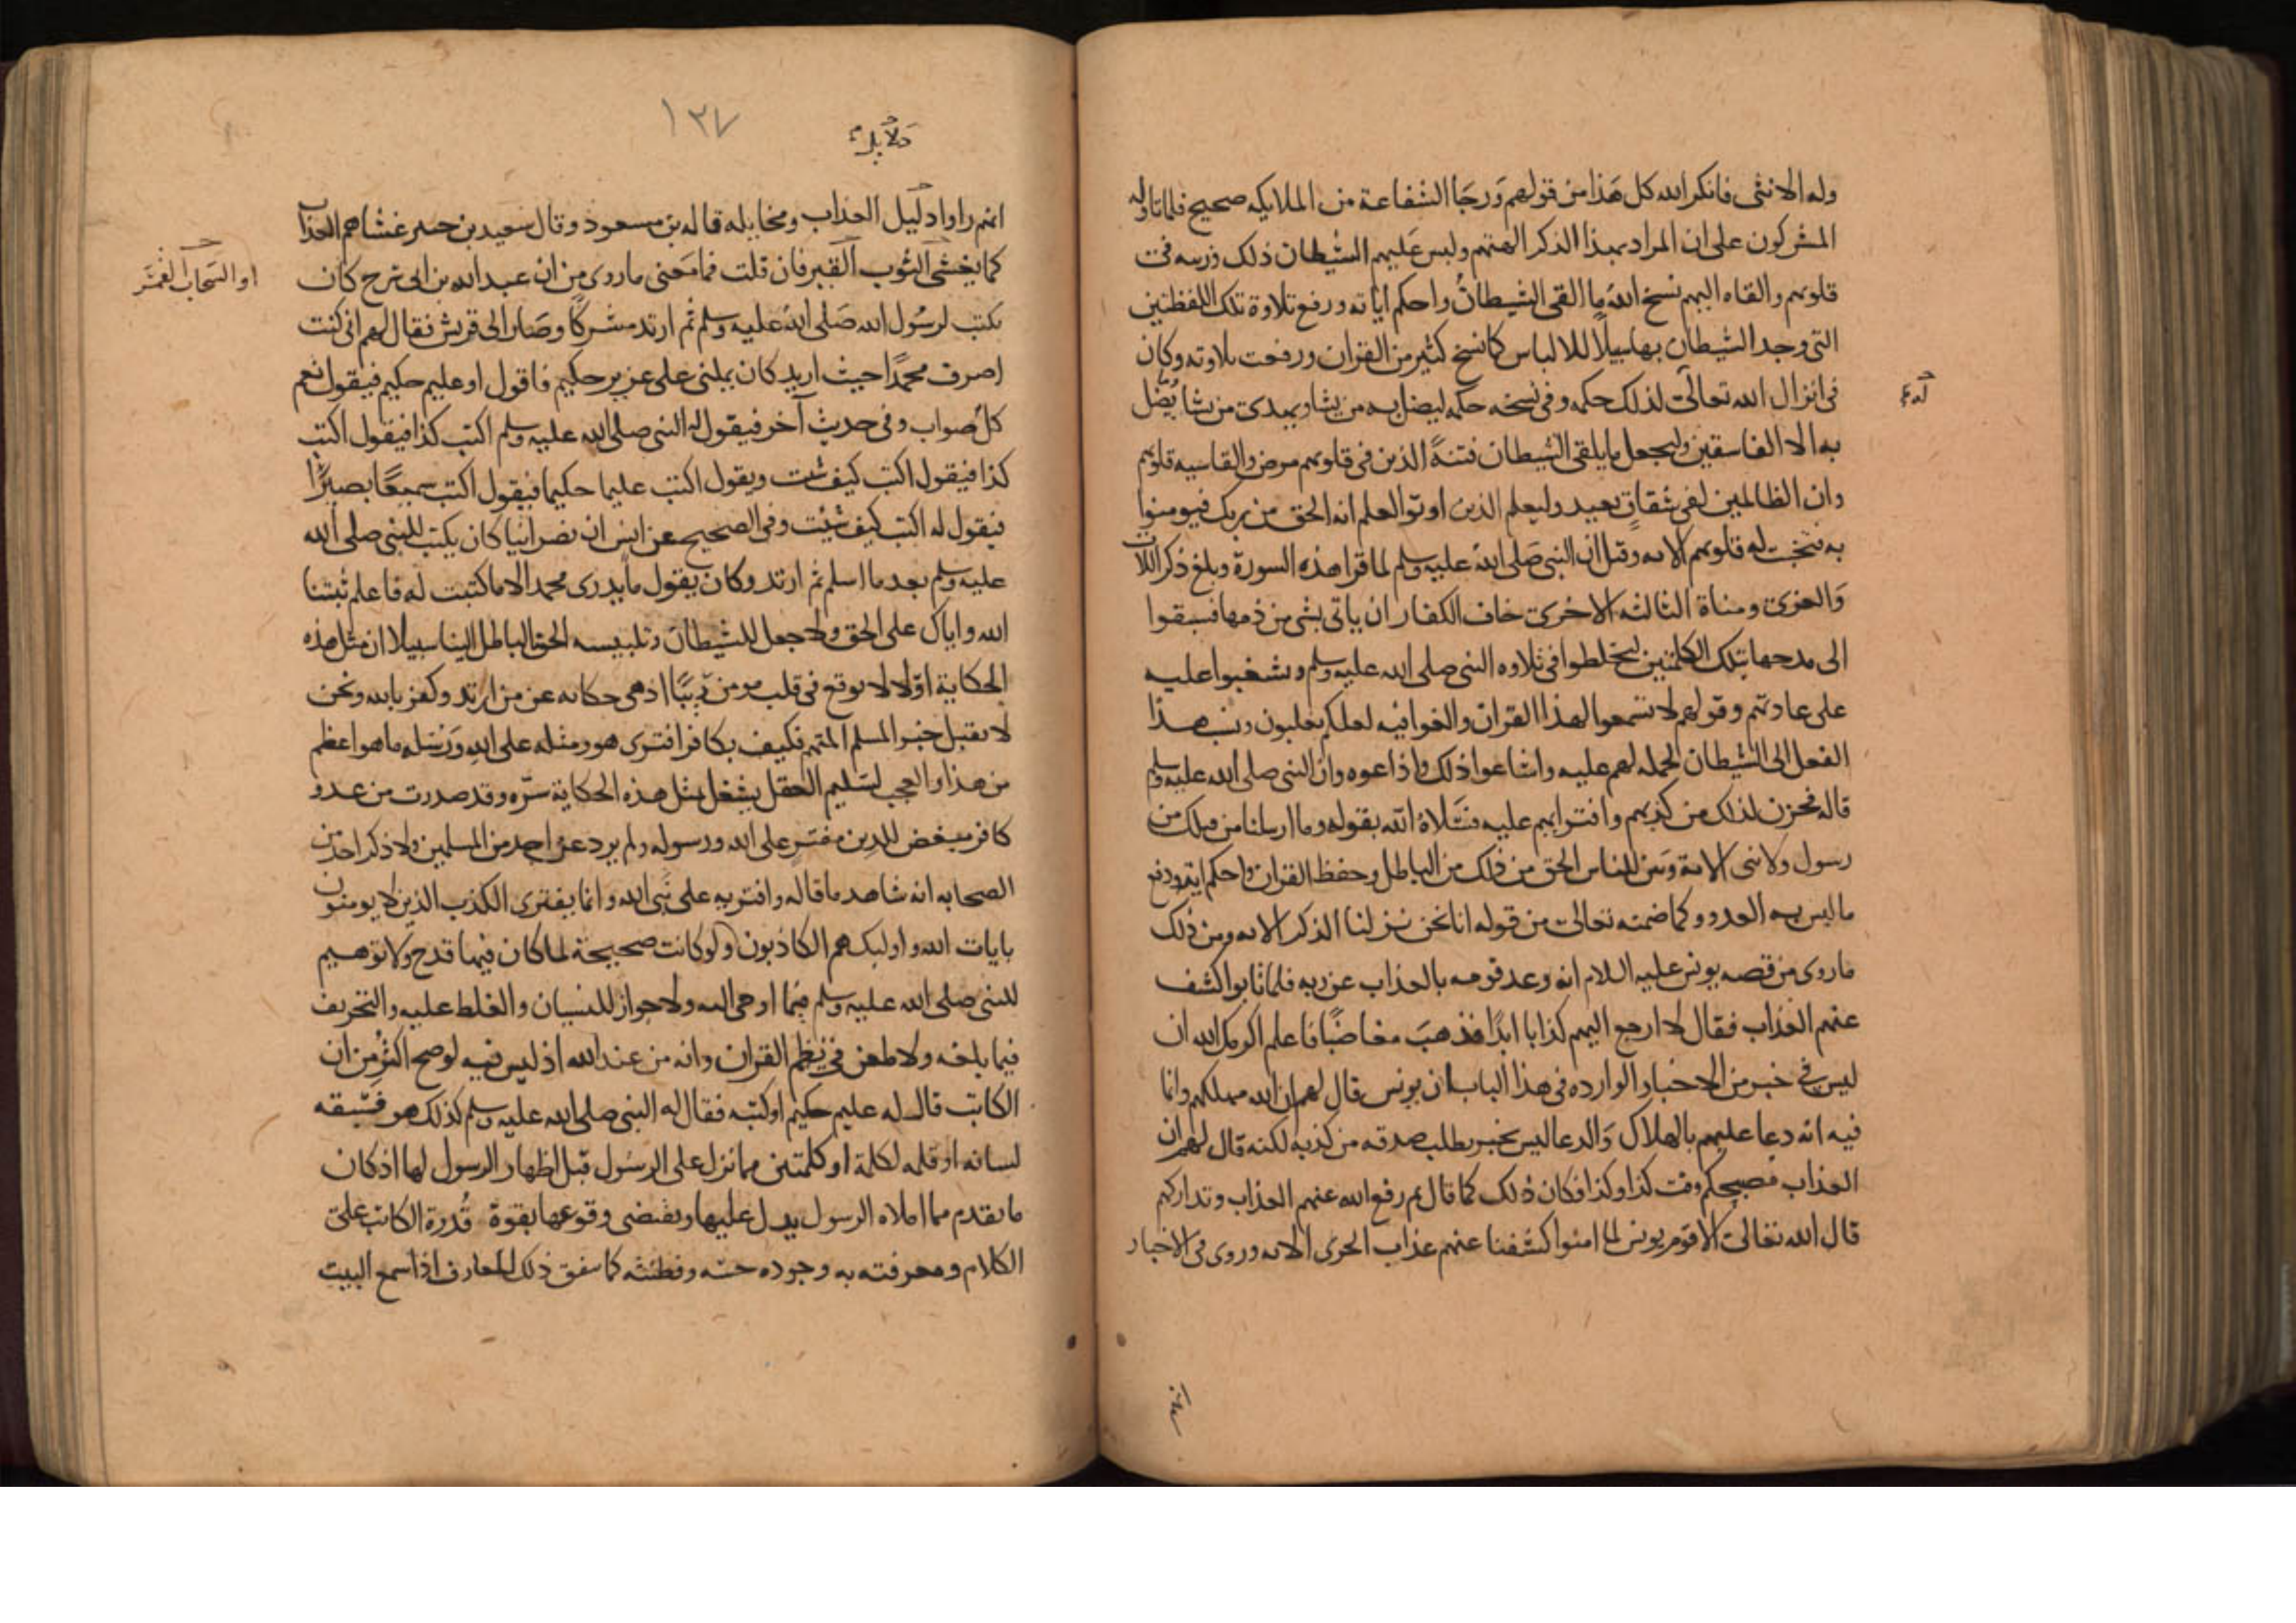 وله الانثى فانكر الله كل هذا من قولهم ورجا الشفاعة من الملايكه صحيح فلما تاوله
المشركون على ان المراد بهذا الذكر الهتهم ولبس عليهم الشيطان ذلك وزينه فى
قلوبهم والقاه اليهم نسخ الله ما القى الشيطان واحكم اياته ورفع تلاوة تلك اللفظتين
التى وجد الشيطان بها سبيلا للالباس كما نسخ كثير من القران ورفعت تلاوته وكان
فى انزال الله تعالى لذلك حكمه وفى نسخه حكمه ليضل به من يشا ويهدى من يشا وما يضل
به الا الفاسقين وليجعل ما يلقى الشيطان فتنة للذين فى قلوبهم مرض والقاسيه قلوبهم
وان الظالمين لفى شقاق بعيد وليعلم الذين اوتوا العلم انه الحق من ربك فيومنوا
به فتخبت له قلوبهم الايه وقيل ان النبى صلى الله عليه وسلم لما قرا هذه السورة وبلغ ذكر اللات
والعزى ومناة الثالثه الاخرى خاف الكفار ان ياتى بشى من ذمها فسبقوا
الى مدحها بتلك الكلمتين ليخلطوا فى تلاوه النبى صلى الله عليه وسلم ويشغبوا عليه
على عادتهم وقولهم لا تسمعوا لهذا القران والغوا فيه لعلكم تغلبون ونسب هذا
الفعل الى الشيطان لحمله لهم عليه واشاعوا ذلك واذاعوه وان النبى صلى الله عليه وسلم
قاله فحزن لذلك من كذبهم وافترايهم عليه فسلاه الله بقوله وما ارسلنا من قبلك من
رسول ولا نبى الاية وبين للناس الحق من ذلك من الباطل وحفظ القران واحكم اياته ودفع
ما لبس به العدو وكما ضمنه تعالى من قوله انا نحن نزلنا الذكر الايه ومن ذلك
ما روى من قصه يونس عليه السلام انه وعد قومه بالعذاب عن ربه فلما تابوا كشف
عنهم العذاب فقال لا ارجع اليهم كذابا ابدا فذهب مغاضبا فاعلم اكرمك الله ان
ليس فى خبر من الاخبار الوارده فى هذا الباب ان يونس قال لهم ان الله مهلككم وانما
فيه انه دعا عليهم بالهلاك والدعا ليس بخبر يطلب صدقه من كذبه لكنه قال لهم ان
العذاب مصبحكم وقت كذا وكذا فكان ذلك كما قال ثم رفع الله عنهم العذاب وتداركهم
قال الله تعالى الا قوم يونس لما امنوا كشفنا عنهم عذاب الخزى الايه وروى فى الاخبار
١٣٧
دلايل
انهم راوا دليل العذاب ومخايله قاله بن مسعود وقال سعيد بن جبير غشاهم العذاب
كما يغشى الثوب القبر فان قلت فما معنى ما روى من ان عبد الله بن ابى سرح كان
يكتب لرسول الله صلى الله عليه وسلم ثم ارتد مشركا وصار الى قريش فقال لهم انى كنت
اصرف محمدا حيث اريد كان يملى على عزيز حكيم فاقول او عليم حكيم فيقول نعم
كل صواب وفى حديث آخر فيقول له النبى صلى الله عليه وسلم اكتب كذا فيقول اكتب
كذا فيقول اكتب كيف شئت ويقول اكتب عليما حكيما فيقول اكتب سميعا بصيرا
فيقول له اكتب كيف شئت وفى الصحيح عن انس ان نصرانيا كان يكتب للنبى صلى الله
عليه وسلم بعد ما اسلم ثم ارتد وكان يقول ما يدرى محمد الا ما كتبت له فاعلم ثبتنا
الله واياك على الحق ولا جعل للشيطان وتلبيسه الحق بالباطل الينا سبيلا ان مثل هذه
الحكاية اولا لا توقع فى قلب مومن ريبا اذ هى حكايه عن من ارتد وكفر بالله ونحن
لا نقبل خبر المسلم المتهم فكيف بكافر افترى هو ومثله على الله ورسله ما هو اعظم
من هذا والعجب لسليم العقل يشغل بمثل هذه الحكاية سره وقد صدرت من عدو
كافر مبغض للدين مفتر على الله ورسوله ولم يرد عن احد من المسلمين ولا ذكر احد من
الصحابه انه شاهد ما قاله وافتريه على نبى الله وانما يفترى الكذب الذين لا يومنون
بايات الله واوليك هم الكاذبون ولو كانت صحيحة لما كان فيها قدح ولا توهيم
للنبى صلى الله عليه وسلم فيما اوحى اليه ولا جواز للنسيان والغلط عليه والتحريف
فيما بلغه ولا طعن فى نظم القران وانه من عند الله اذ ليس فيه لو صح اكثر من ان
الكاتب قال له عليم حكيم او كتبه فقال له النبى صلى الله عليه وسلم كذلك هو فسبقه
لسانه او قلمه لكلمة او كلمتين مما نزل على الرسول قبل اظهار الرسول لها اذ كان
ما تقدم مما املاه الرسول يدل عليها ويقتضى وقوعها بقوة قدرة الكاتب على
الكلام ومعرفته به وجوده حسه وفطنته كما يتفق ذلك للعارف اذا سمع البيت